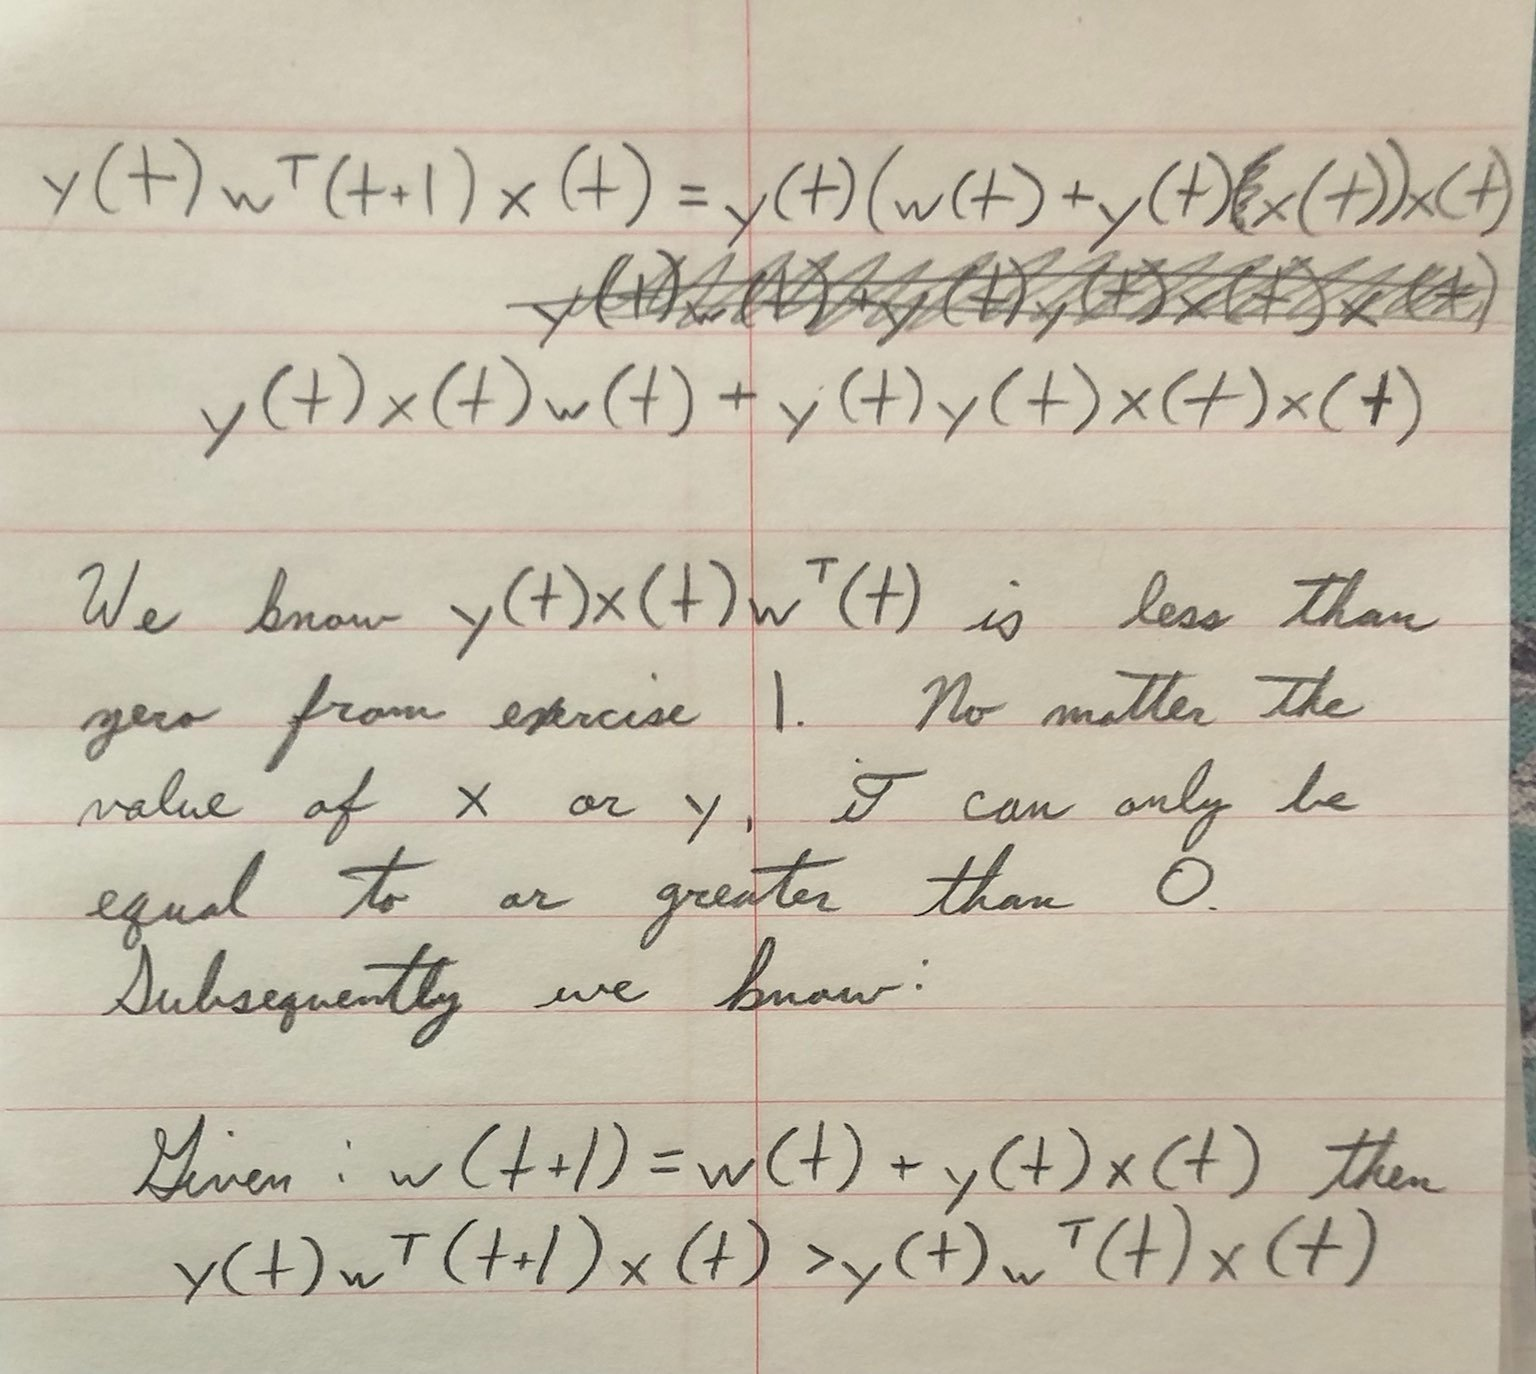 y(t)wᵀ(t+1)x(t) = y(t)(w(t) + y(t)x(t))x(t)
y(t)w(t) + y(t)y(t)x(t)x(t)
y(t)x(t)w(t) + y(t)y(t)x(t)x(t)
We know y(t)x(t)wᵀ(t) is less than
zero from exercise 1. No matter the
value of x or y, it can only be
equal to or greater than 0.
Subsequently we know:
Given: w(t+1) = w(t) + y(t)x(t) then
y(t)wᵀ(t+1)x(t) > y(t)wᵀ(t)x(t)